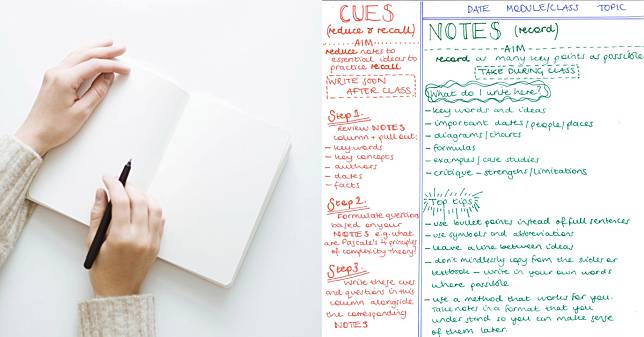 CUES
(reduce & recall)
AIM
reduce notes to
essential ideas to
practice recall
WRITE SOON
AFTER CLASS
Step 1.
Review NOTES
column + pull out:
- key words
- key concepts
- authors
- dates
- facts
Step 2.
Formulate question
based on your
NOTES e.g. what
are Pascale's 4 principles
of complexity theory?
Step 3.
Write these cues
and questions in this
column alongside
the corresponding
NOTES
DATE MODULE/CLASS TOPIC
NOTES (record)
AIM
record as many key points as possible
TAKE DURING CLASS
What do I write here?
- key words and ideas
- important dates/people/places
- diagrams/charts
- formulas
- examples/case studies
- critique - strengths/limitations
Top tips
- use bullet points instead of full sentences
- use symbols and abbreviations
- leave a line between ideas
- don't mindlessly copy from the slides or
textbook - write in your own words
where possible
- use a method that works for you.
Take notes in a format that you
understand so you can make sense
of them later.